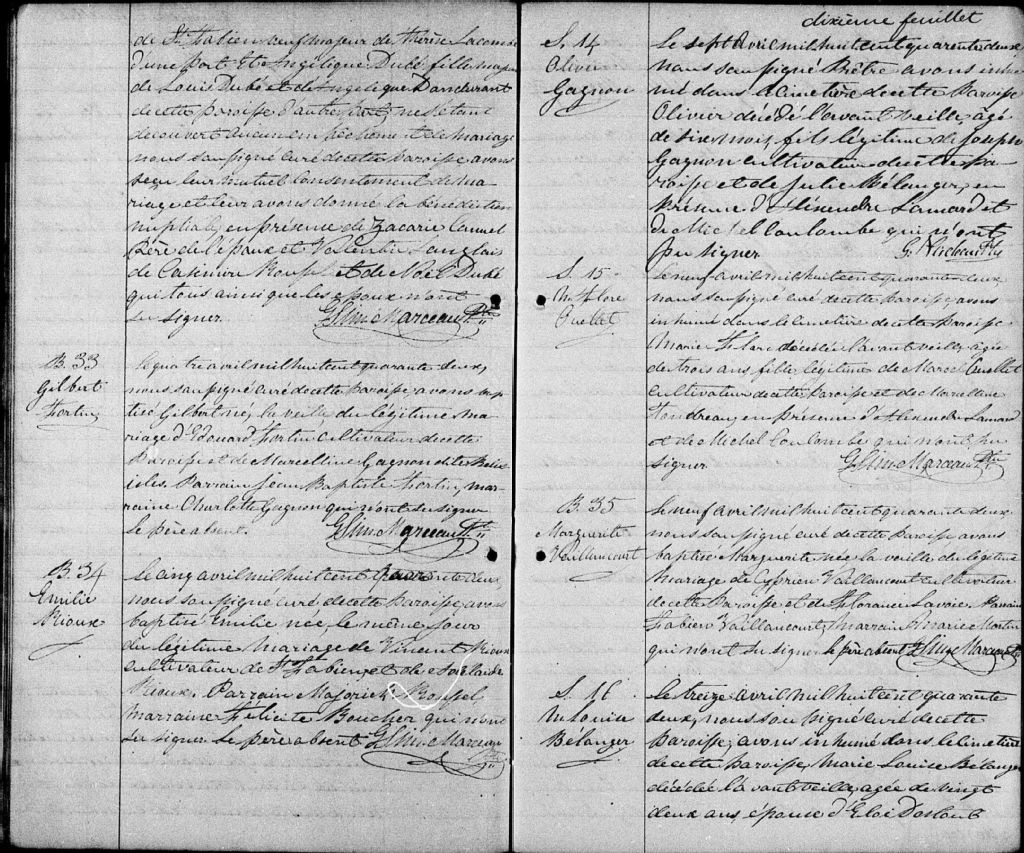 de St. Fabien veuf majeur de Thérèse Lacombe
d'une part. Et Angélique Dubé fille majeure
de Louis Dubé et de Angelique Dandurant
de cette paroisse d'autre part, ne s'étant
découvert aucun empêchement de mariage
nous soussigné curé de cette paroisse, avons
reçu leur mutuel consentement de ma
riage et leur avons donné la bénédiction
nuptiale, en présence de Zacarie Canuel
Père de l'époux et Valentin Langlais
de Casimir et de Noël Dubé
qui tous ainsi que les époux n'ont
su signer.
B. 33
Gilbert
Fortin
Le quatre avril mil huit cent quarante deux,
nous soussigné curé de cette paroisse avons bap
tisé Gilbert né, la veille du légitime ma
riage d'Edouard Fortin cultivateur de cette
paroisse et de Marcelline Gagnon dite Belle
isles. Parrain Jean Baptiste Fortin, mar
raine Charlotte Gagnon qui n'ont su signer
le père absent.
B. 34
Emilie
Rioux
Le cinq avril mil huit cent quarante deux,
nous soussigné curé de cette paroisse, avons
baptisé Emilie née, le même jour
du légitime mariage de Vincent Rioux
cultivateur de St. Fabien et de
Rioux. Parrain Majorick
Marraine Félicité Boucher qui n'ont
su signer le père absent
dixième feuillet
S. 14
Olivier
Gagnon
Le sept Avril mil huit cent quarente deux
nous soussigné Prêtre avons inhu
mé dans le cimetière de cette Paroisse
Olivier décédé l'avant veille, agé
de six mois, fils légitime de Joseph
Gagnon cultivateur de cette pa
roisse et de Julie Bélanger, en
présence d'Alexendre Lamard et
de Michel Coulombe qui n'ont
pu signer
S. 15
M. Flore
Ouellet
Le neuf avril mil huit cent quarante deux
nous soussigné curé de cette paroisse avons
inhumé dans le cimetière de cette paroisse
Marie Flore décédée l'avant veille, agée
de trois ans fille légitime de Marcel Ouellet
cultivateur de cette paroisse et de Marcelline
en présence d'Alexendre Lamard
et de Michel Coulombe qui n'ont pu
signer
B. 35
Marguerite
Vaillancourt
Le neuf avril mil huit cent quarante deux
nous soussigné curé de cette paroisse avons
baptisé Marguerite née la veille du légitime
mariage de Cyprien Vaillancourt cultivateur
de cette Paroisse et de Florance Lavoie. Parrain
Fabien Vaillancourt, Marraine Marie Morin
qui n'ont su signer le père absent
S. 16
M. Louise
Bélanger
Le treize avril mil huit cent quarante
deux, nous soussigné curé de cette
paroisse, avons inhumé dans le cimetière
de cette paroisse, Marie Louise Bélanger
décédée l'avant veille, agée de vingt
deux ans épouse d'Eloi